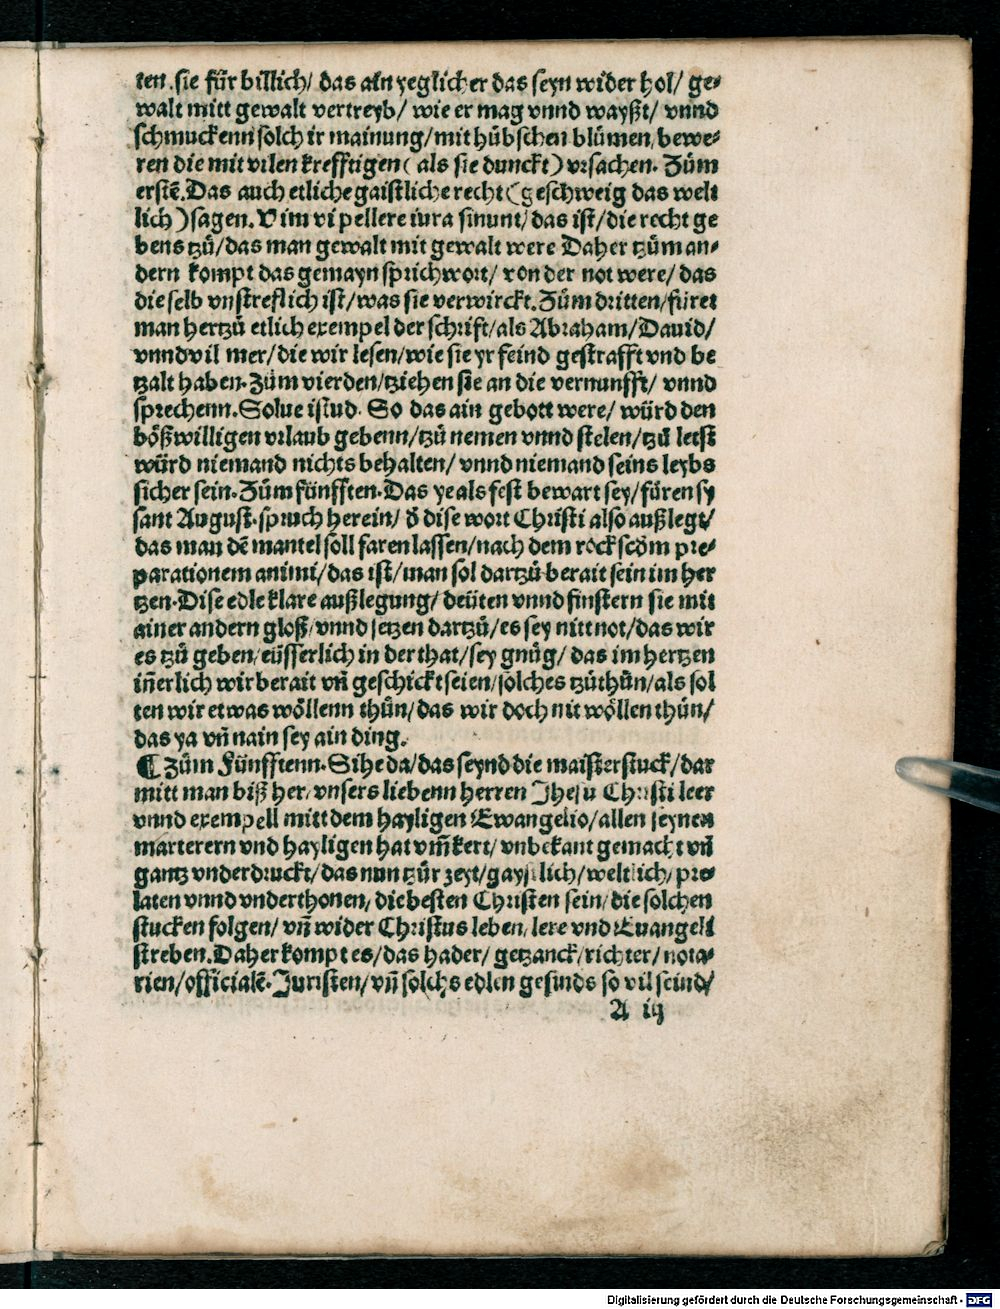 ten. sie für billich/ das ain yeglicher das seyn wider hol/ ge⸗
walt mitt gewalt vertreyb/ wie er mag vnnd wayßt/ vnnd
schmuckenn solch ir mainung/ mit hübschen blůmen, bewe⸗
ren die mit vilen krefftigen ( als sie dunckt ) vrsachen. Zům
erstē. Das auch etliche gaistliche recht ( geschweig das welt
lich ) sagen. Vim vi pellere iura sinunt/ das ist/ die recht ge
bens tzů/ das man gewalt mit gewalt were Daher tzům an⸗
dern kompt das gemayn sprichwort/ von der not were/ das
die selb vnstreflich ist/ was sie verwirckt. Zům dritten/ füret
man hertzů etlich exempel der schrift/ als Abraham/ Dauid/
vnnd vil mer/ die wir lesen/ wie sie yr feind gestrafft vnd be
tzalt haben. Zům vierden/ tziehen sie an die vernunfft/ vnnd
sprechenn. Solue istud. So das ain gebott were/ würd den
bößwilligen vrlaub gebenn/ tzů nemen vnnd stelen/ tzů letst
würd niemand nichts behalten/ vnnd niemand seins leybs
sicher sein. Zům fünfften. Das ye als fest bewart sey/ füren sy
sant August. spruch herein/ d̄ dise wort Christi also außlegt/
das man dē mantel soll faren lassen/ nach dem rock scd̄m pre⸗
parationem animi/ das ist/ man sol dartzů berait sein im her
tzen. Dise edle klare außlegung/ deüten vnnd finstern sie mit
ainer andern gloß/ vnnd setzen dartzů/ es sey nitt not/ das wir
es tzů geben/ eüsserlich in der that/ sey gnůg/ das im hertzen
iñerlich wir berait vñ geschickt seien/ solches tzůthůn/ als sol
ten wir etwas wöllenn thůn/ das wir doch nit wöllen thůn/
das ya vñ nain sey ain ding.
¶ Zům Fünfftenn. Sihe da/ das seynd die maisterstuck/ dar
mitt man biß her/ vnsers liebenn herren Jhesu Christi leer
vnnd exempell mitt dem hayligen Ewangelio/ allen seynen
marterern vnd hayligen hat vm̄kert/ vnbekant gemacht vñ
gantz vnderdruckt/ das nun tzůr zeyt/ gaystlich/ weltlich/ pre⸗
laten vnnd vnderthonen, die besten Christen sein/ die solchen
stucken folgen/ vñ wider Christus leben, lere vnd Euangeli
streben. Daher kompt es/ das hader/ getzanck/ richter/ nota⸗
rien/ officialē. Juristen/ vñ solchs edlen gesinds so vil seind/
A iij
Digitalisierung gefördert durch die Deutsche Forschungsgemeinschaft - DFG